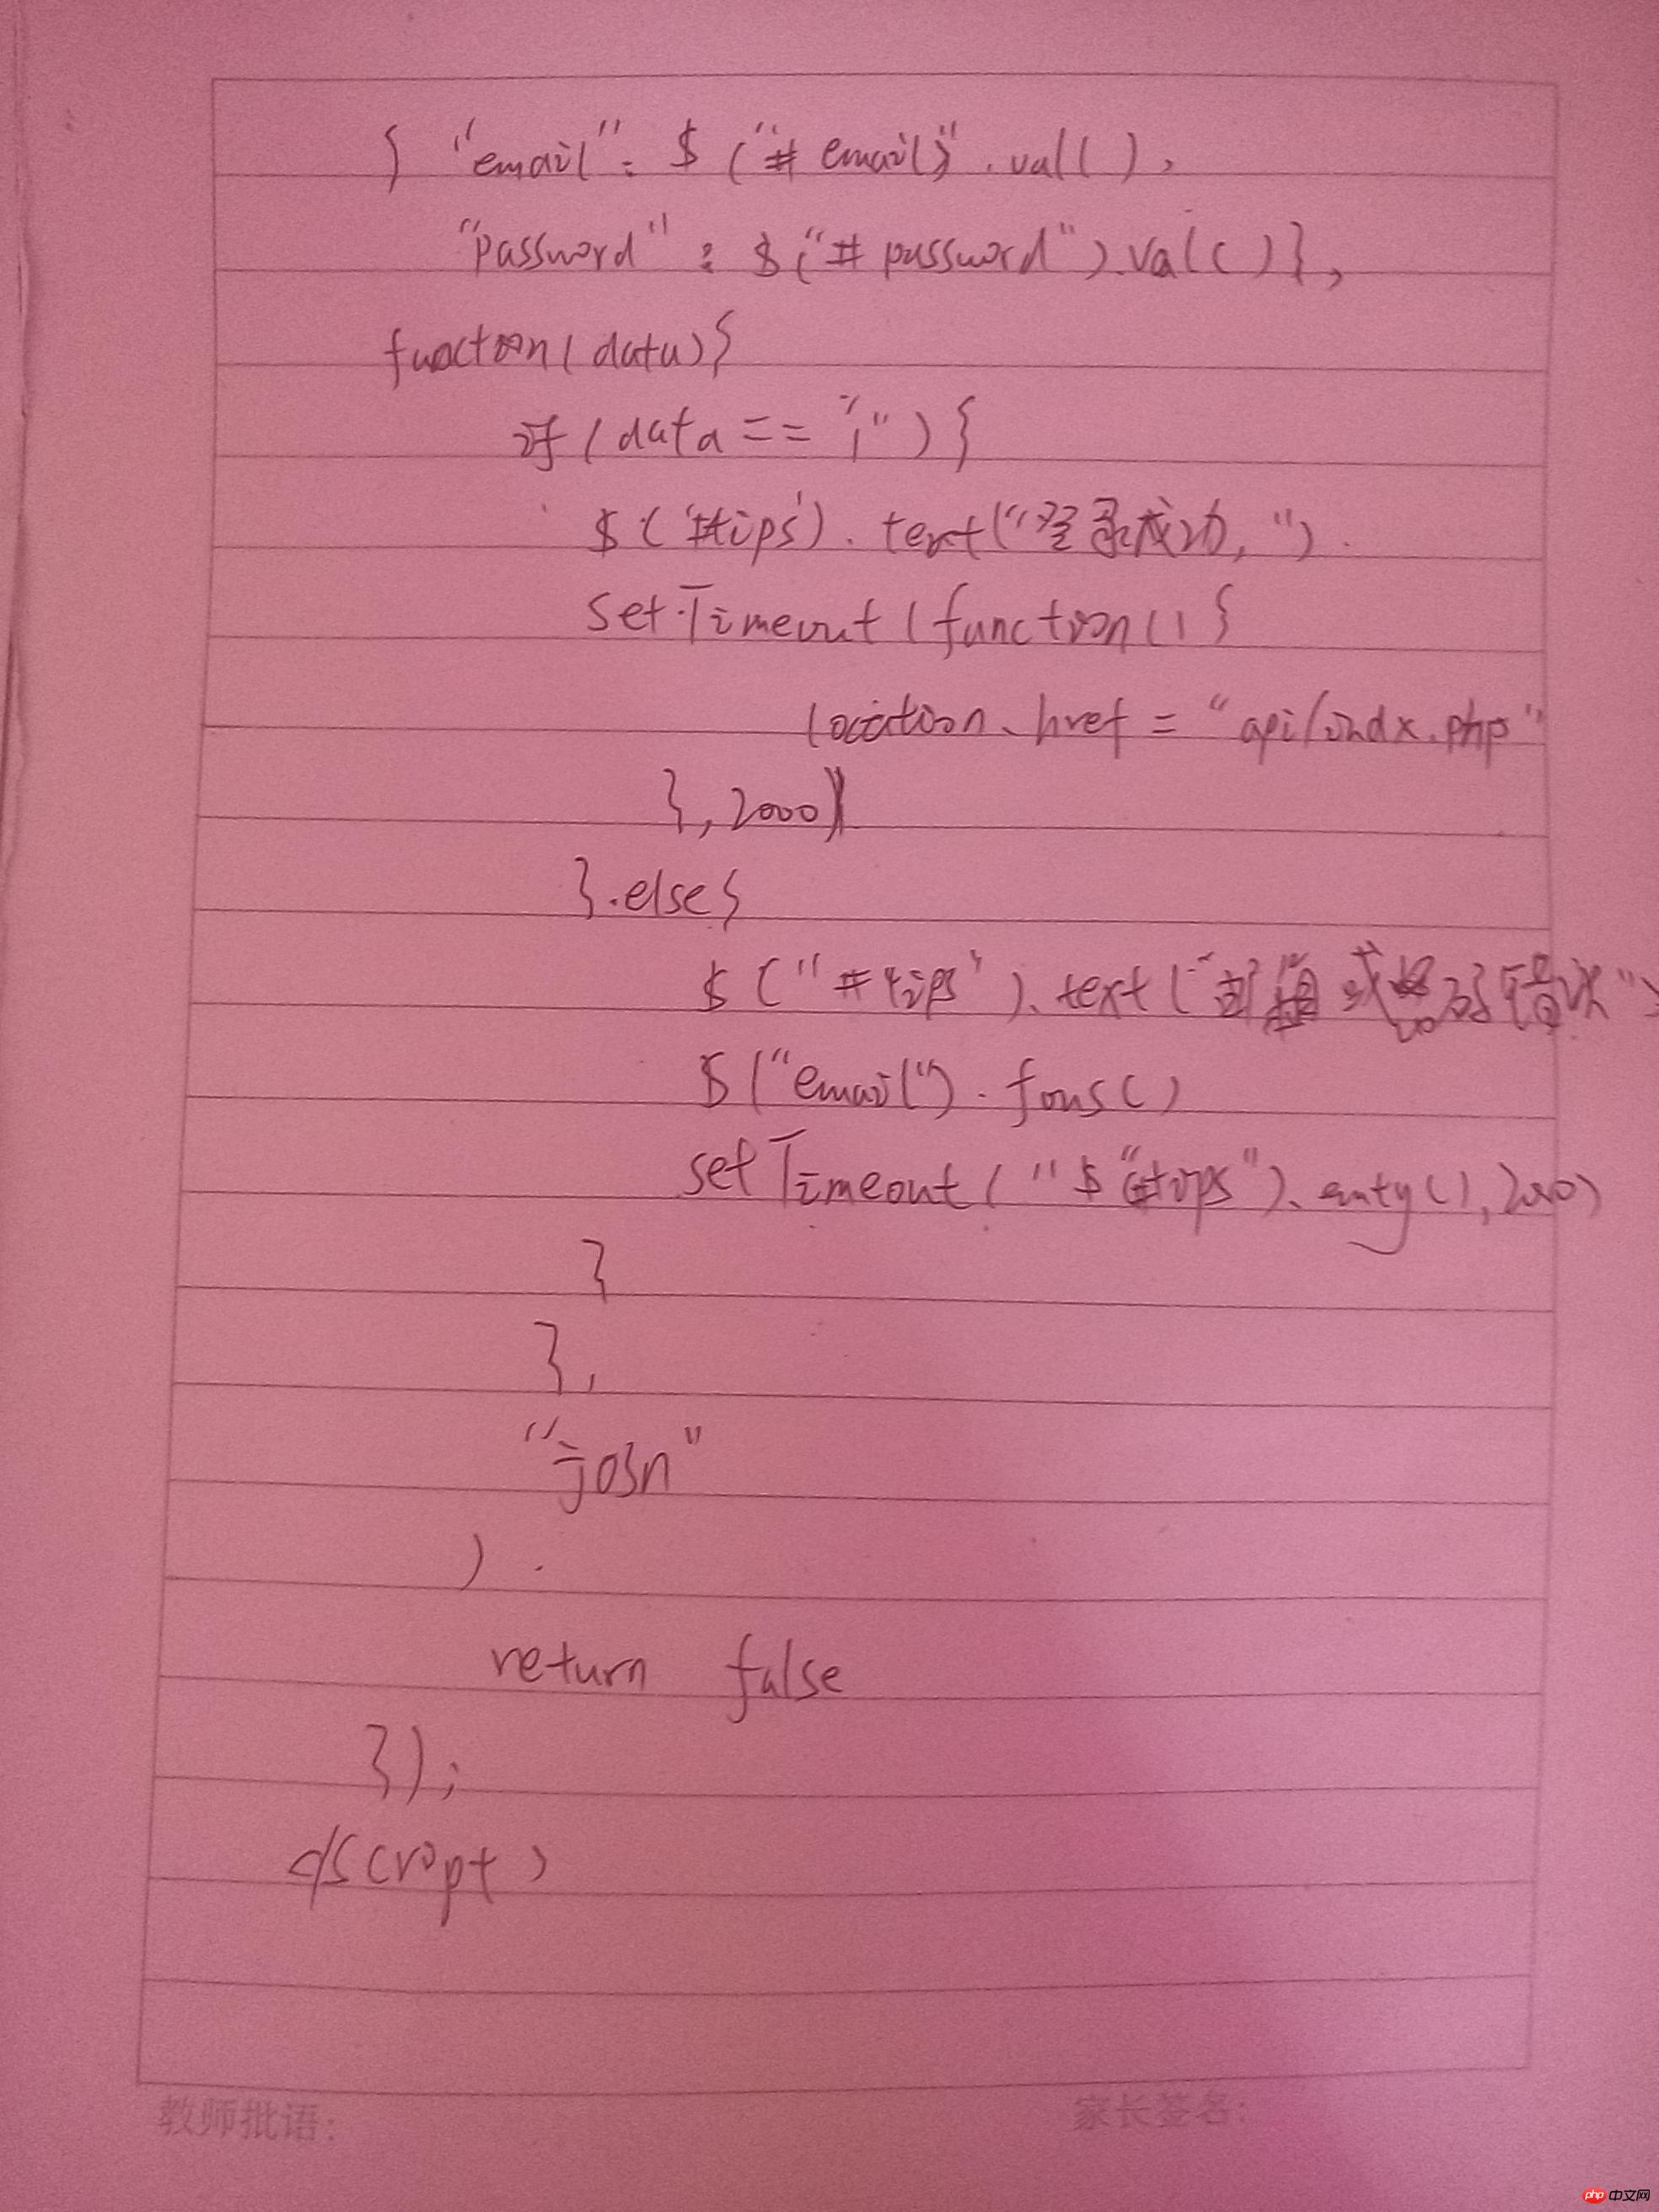 { "email" : $ ("# email)" . val ( ) ,
"password" : $ ("# password" ) . val ( ) } ,
function ( data ) {
if ( data == "1" ) {
$ ( '#tips' ) . text ( "登录成功, " ) .
setTimeout ( function ( ) {
location . href = "api/indx.php"
} , 2000 )
} . else {
$ ( "#tips" ) . text ( "邮箱或密码错误" )
$ ("email") . fous ( )
setTimeout ( "$ ("#tips" ) . emty ( ) , 2000 )
}
} ,
"josn"
) .
return false
} ) ;
</script>
教师批语:
家长签名:
php 中文网